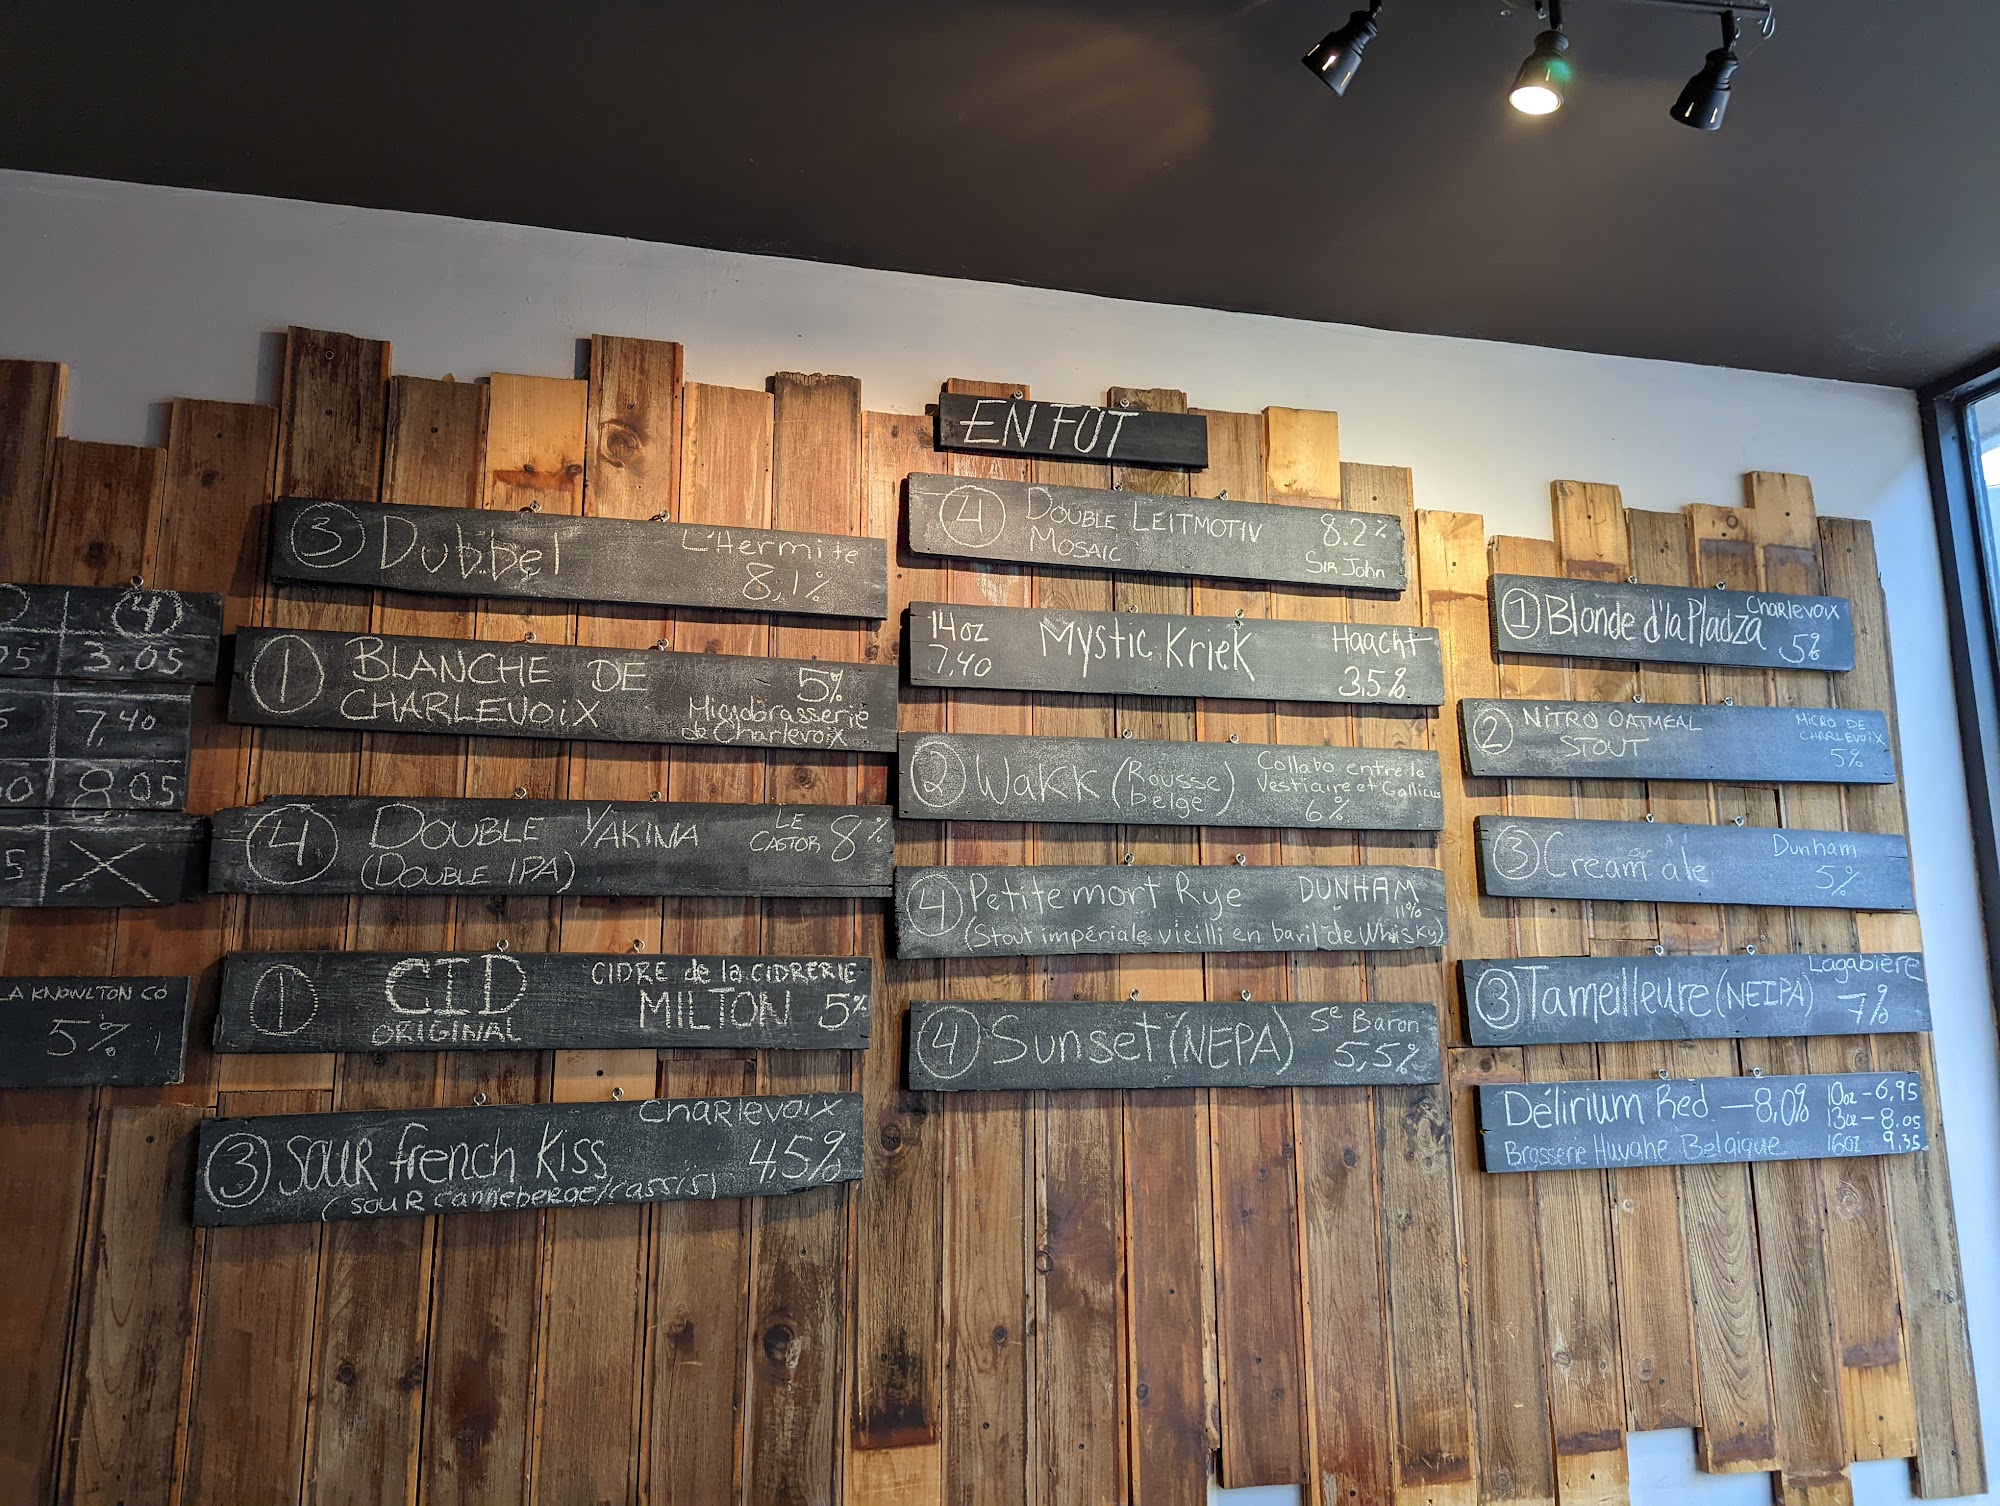 EN FÛT
4
3.05
7,40
8.05
X
LA KNOWLTON CO
5%
3 Dubbel L'Hermite
8,1%
1 BLANCHE DE 5%
CHARLEVOIX Microbrasserie
de Charlevoix
4 DOUBLE YAKIMA LE
CASTOR 8%
(DOUBLE IPA)
1 CID CIDRE de la CIDRERIE
ORIGINAL MILTON 5%
3 SOUR french Kiss Charlevoix
(SOUR canneberge/cassis) 4,5%
4 DOUBLE LEITMOTIV 8.2%
MOSAIC Sir John
14oz Mystic Kriek Haacht
7,40 3,5%
2 Wakk (Rousse Collabo entre le
belge) Vestiaire et Gallicus
6%
4 Petite mort Rye DUNHAM
11%
(Stout impériale vieilli en baril de Whisky)
4 Sunset (NEPA) 5e Baron
5,5%
1 Blonde d'la Pladza Charlevoix
5%
2 NITRO OATMEAL MICRO DE
STOUT CHARLEVOIX
5%
3 Cream ale Dunham
5%
3 Tameilleure (NEIPA) Lagabière
7%
Délirium Red — 8,0% 10oz - 6,95
13oz - 8.05
Brasserie Huyghe Belgique 16oz 9,35